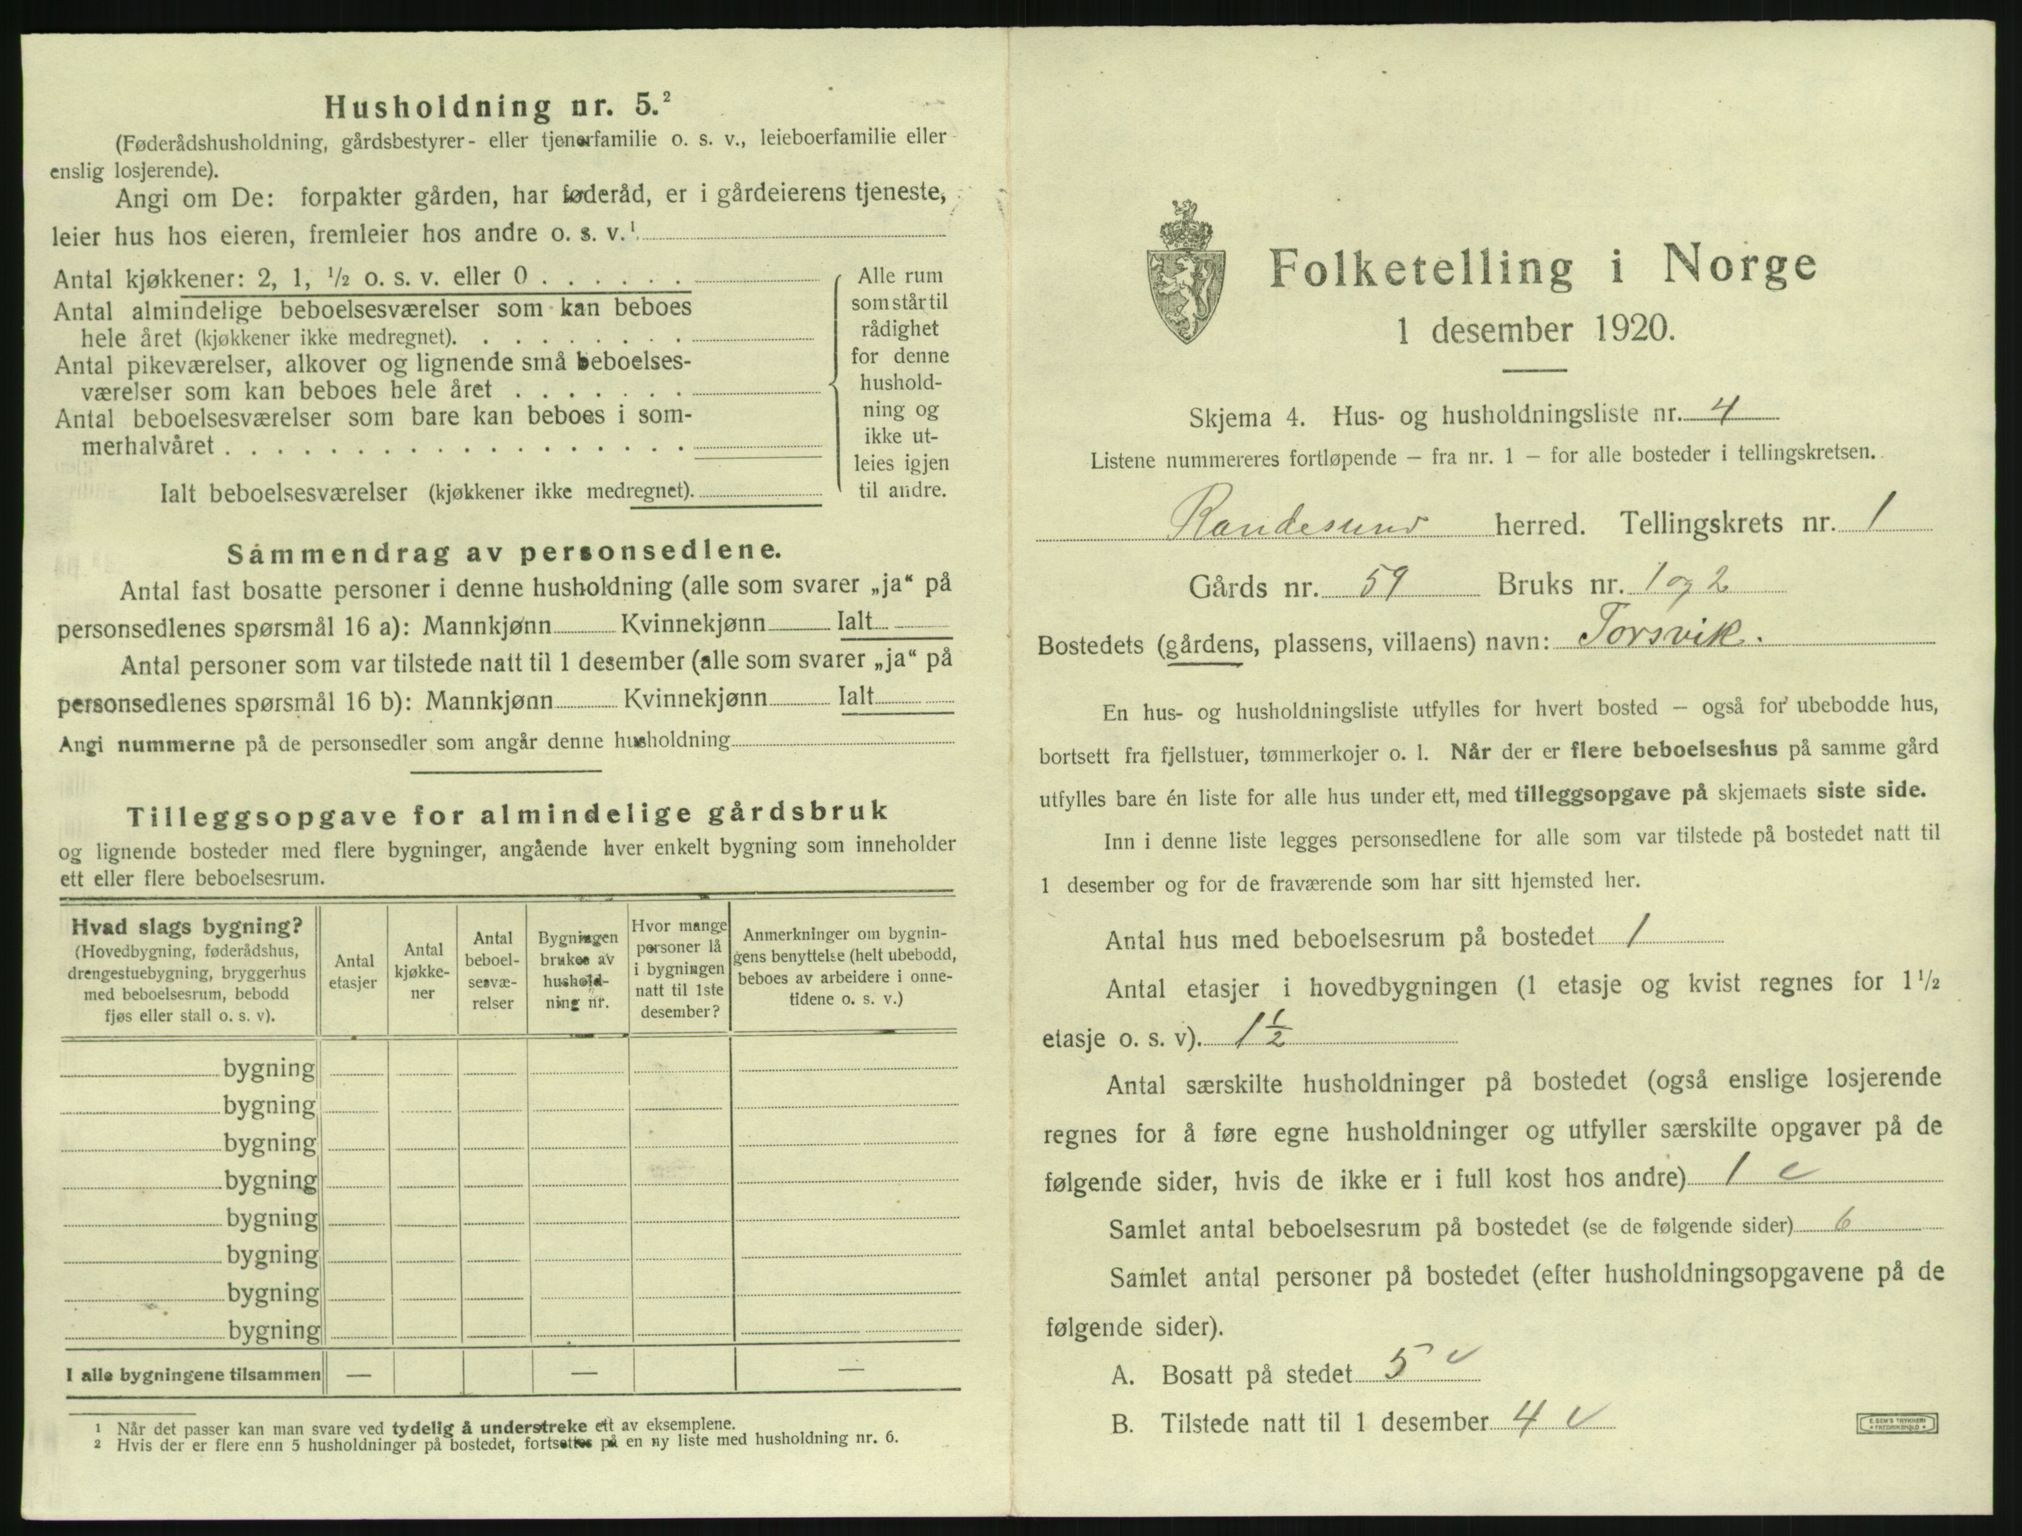 Husholdning nr. 5.²
(Føderådshusholdning, gårdsbestyrer- eller tjenerfamilie o. s. v., leieboerfamilie eller
enslig losjerende).
Angi om De: forpakter gården, har føderåd, er i gårdeierens tjeneste,
leier hus hos eieren, fremleier hos andre o. s. v.¹
Antal kjøkkener: 2, 1, ½ o. s. v. eller 0 . . . . . .
Antal almindelige beboelsesværelser som kan beboes
hele året (kjøkkener ikke medregnet). . . . . . . . .
Antal pikeværelser, alkover og lignende små beboelses-
værelser som kan beboes hele året . . . . . . .
Antal beboelsesværelser som bare kan beboes i som-
merhalvåret . . . . . . . . . . . . . . . . . .
Ialt beboelsesværelser (kjøkkener ikke medregnet).
Alle rum
som står til
rådighet
for denne
hushold-
ning og
ikke ut-
leies igjen
til andre.
Sammendrag av personsedlene.
Antal fast bosatte personer i denne husholdning (alle som svarer „ja“ på
personsedlenes spørsmål 16 a): Mannkjønn Kvinnekjønn Ialt
Antal personer som var tilstede natt til 1 desember (alle som svarer „ja“ på
personsedlenes spørsmål 16 b): Mannkjønn Kvinnekjønn Ialt
Angi nummerne på de personsedler som angår denne husholdning
Tilleggsopgave for almindelige gårdsbruk
og lignende bosteder med flere bygninger, angående hver enkelt bygning som inneholder
ett eller flere beboelsesrum.
Hvad slags bygning?
(Hovedbygning, føderådshus,
drengestuebygning, bryggerhus
med beboelsesrum, bebodd
fjøs eller stall o. s. v).
Antal
etasjer
Antal
kjøkke-
ner
Antal
beboel-
sesvæ-
relser
Bygningen
brukes av
hushold-
ning nr.
Hvor mange
personer lå
i bygningen
natt til 1ste
desember?
Anmerkninger om bygnin-
gens benyttelse (helt ubebodd,
beboes av arbeidere i onne-
tidene o. s. v.)
bygning
bygning
bygning
bygning
bygning
bygning
bygning
bygning
I alle bygningene tilsammen — — —
¹ Når det passer kan man svare ved tydelig å understreke ett av eksemplene.
² Hvis der er flere enn 5 husholdninger på bostedet, fortsettes på en ny liste med husholdning nr. 6.
Folketelling i Norge
1 desember 1920.
Skjema 4. Hus- og husholdningsliste nr. 4
Listene nummereres fortløpende – fra nr. 1 – for alle bosteder i tellingskretsen.
Randesund herred. Tellingskrets nr. 1
Gårds nr. 59 Bruks nr. 1 og 2
Bostedets (gårdens, plassens, villaens) navn: Torsvik.
En hus- og husholdningsliste utfylles for hvert bosted – også for ubebodde hus,
bortsett fra fjellstuer, tømmerkojer o. l. Når der er flere beboelseshus på samme gård
utfylles bare én liste for alle hus under ett, med tilleggsopgave på skjemaets siste side.
Inn i denne liste legges personsedlene for alle som var tilstede på bostedet natt til
1 desember og for de fraværende som har sitt hjemsted her.
Antal hus med beboelsesrum på bostedet 1
Antal etasjer i hovedbygningen (1 etasje og kvist regnes for 1½
etasje o. s. v). 1½
Antal særskilte husholdninger på bostedet (også enslige losjerende
regnes for å føre egne husholdninger og utfyller særskilte opgaver på de
følgende sider, hvis de ikke er i full kost hos andre) 1
Samlet antal beboelsesrum på bostedet (se de følgende sider) 6
Samlet antal personer på bostedet (efter husholdningsopgavene på de
følgende sider).
A. Bosatt på stedet 5
B. Tilstede natt til 1 desember 4
E. SEM'S TRYKKERI
FREDRIKSHALD